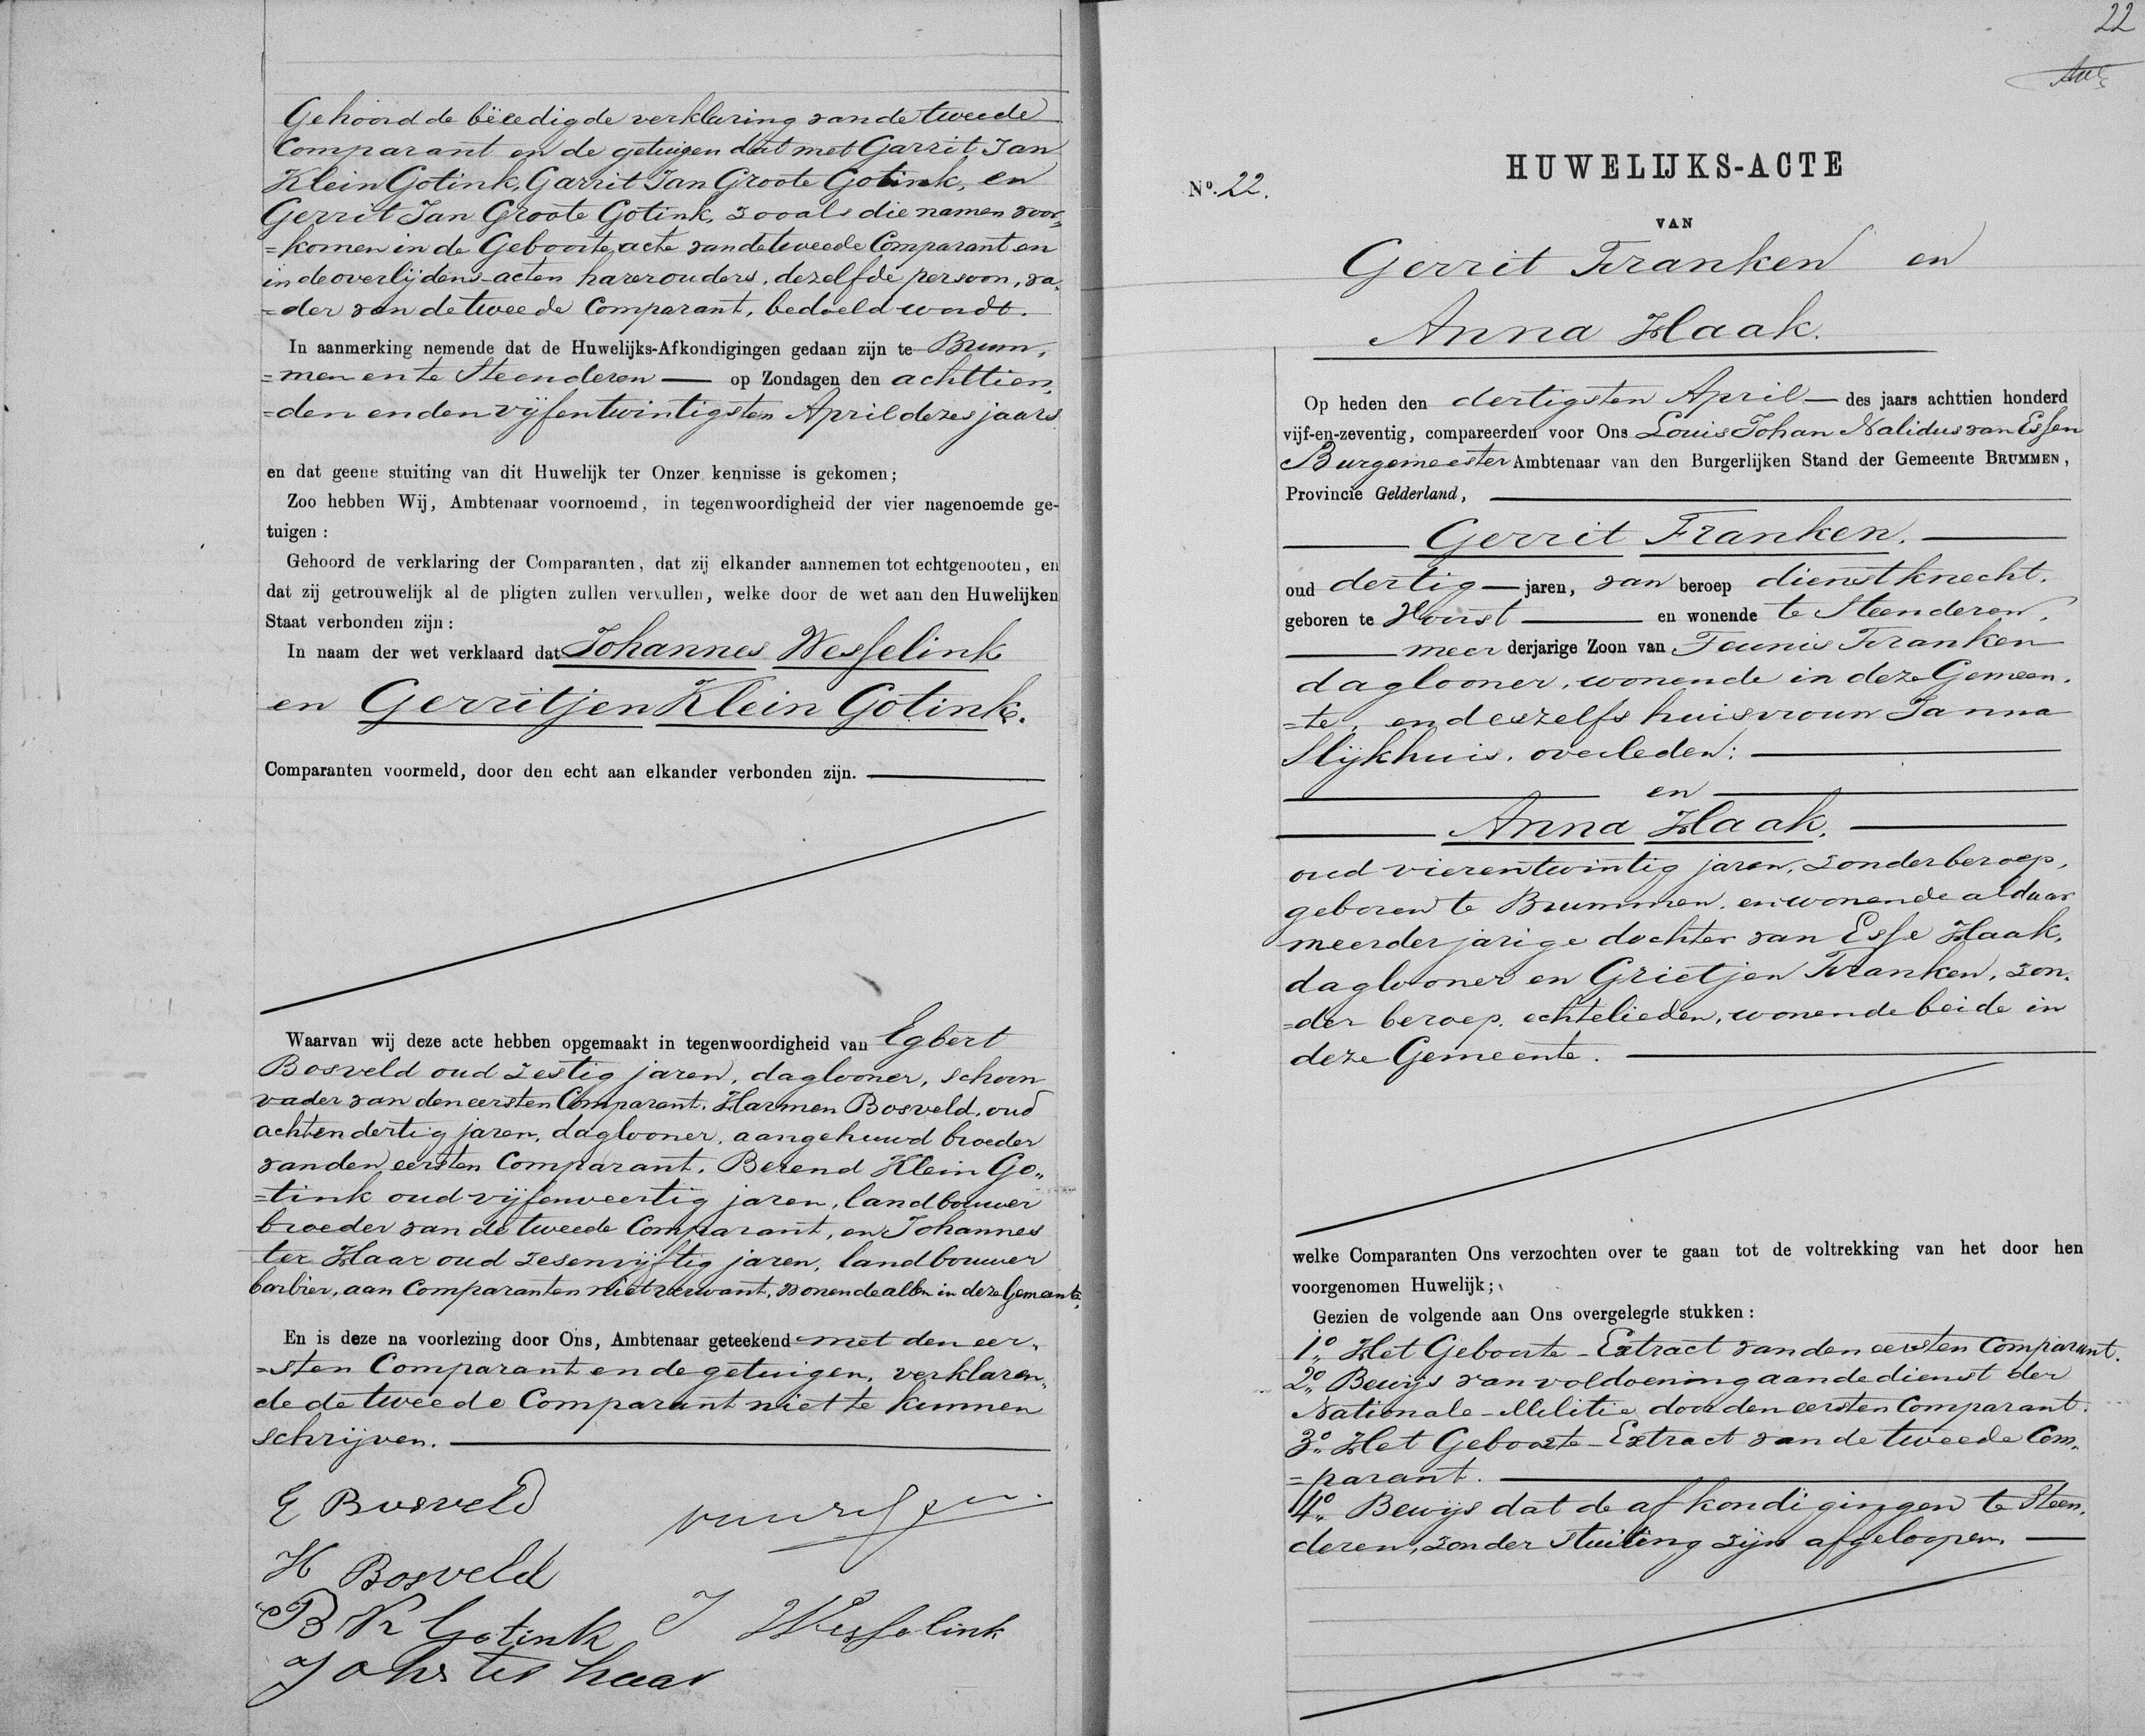 Gehoord de bëeedigde verklaring van de tweede
Comparant en de getuigen dat met Garrit Jan
Klein Gotink, Garrit Jan Groote Gotink, en
Gerrit Jan Groote Gotink, zooals die namen voor„
=komen in de Geboorte acte van de tweede Comparant en
in de overlijdens-acten harer ouders, dezelfde persoon, va„
=der van de tweede Comparant, bedoeld wordt.
In aanmerking nemende dat de Huwelijks-Afkondigingen gedaan zijn te Brum„
=men en te Steenderen — op Zondagen den achttien„
=den en den vijfentwintigsten April dezes jaars
en dat geene stuiting van dit Huwelijk ter Onzer kennisse is gekomen;
Zoo hebben Wij, Ambtenaar voornoemd, in tegenwoordigheid der vier nagenoemde ge-
tuigen:
Gehoord de verklaring der Comparanten, dat zij elkander aannemen tot echtgenooten, en
dat zij getrouwelijk al de pligten zullen vervullen, welke door de wet aan den Huwelijken
Staat verbonden zijn:
In naam der wet verklaard dat Johannes Wesselink
en Gerritjen Klein Gotink.
Comparanten voormeld, door den echt aan elkander verbonden zijn.
Waarvan wij deze acte hebben opgemaakt in tegenwoordigheid van Egbert
Bosveld oud zestig jaren, daglooner, schoon
vader van den eersten Comparant. Harmen Bosveld, oud
achtendertig jaren, daglooner, aangehuwd broeder
van den eersten Comparant. Berend Klein Go„
=tink oud vijfenveertig jaren, landbouwer
broeder van de tweede Comparant, en Johannes
ter Haar oud zesenvijftig jaren, landbouwer
barbier, aan Comparanten niet verwant, wonende allen in deze Gemeente.
En is deze na voorlezing door Ons, Ambtenaar geteekend met den eer„
=sten Comparant en de getuigen, verklaren„
de de tweede Comparant niet te kunnen
schrijven.
E Bosveld
H Bosveld
B K Gotink J Wesselink
Johs ter haar
22
HUWELIJKS-ACTE
No. 22.
VAN
Gerrit Franken en
Anna Haak.
Op heden den dertigsten April — des jaars achttien honderd
vijf-en-zeventig, compareerden voor Ons Louis Johan Nalidus van Essen
Burgemeester Ambtenaar van den Burgerlijken Stand der Gemeente BRUMMEN,
Provincie Gelderland,
Gerrit Franken.
oud dertig — jaren, van beroep dienstknecht.
geboren te Voorst — en wonende te Steenderen.
meer derjarige Zoon van Teunis Franken
daglooner, wonende in deze Gemeen„
=te, en deszelfs huisvrouw Janna
Slijkhuis, overleden:
en
Anna Haak.
oud vierentwintig jaren, zonder beroep,
geboren te Brummen, en wonende aldaar
meerderjarige dochter van Esse Haak,
daglooner en Grietjen Franken, zon„
=der beroep, echtelieden, wonende beide in
deze Gemeente.
welke Comparanten Ons verzochten over te gaan tot de voltrekking van het door hen
voorgenomen Huwelijk;
Gezien de volgende aan Ons overgelegde stukken:
1o„ Het Geboorte-Extract van den eersten Comparant.
2o„ Bewijs van voldoening aan de dienst der
Nationale-Militie door den eersten Comparant.
3o„ Het Geboorte-Extract van de tweede Com„
=parant.
4o„ Bewijs dat de afkondigingen te Steen„
deren, zonder stuiting zijn afgeloopen.